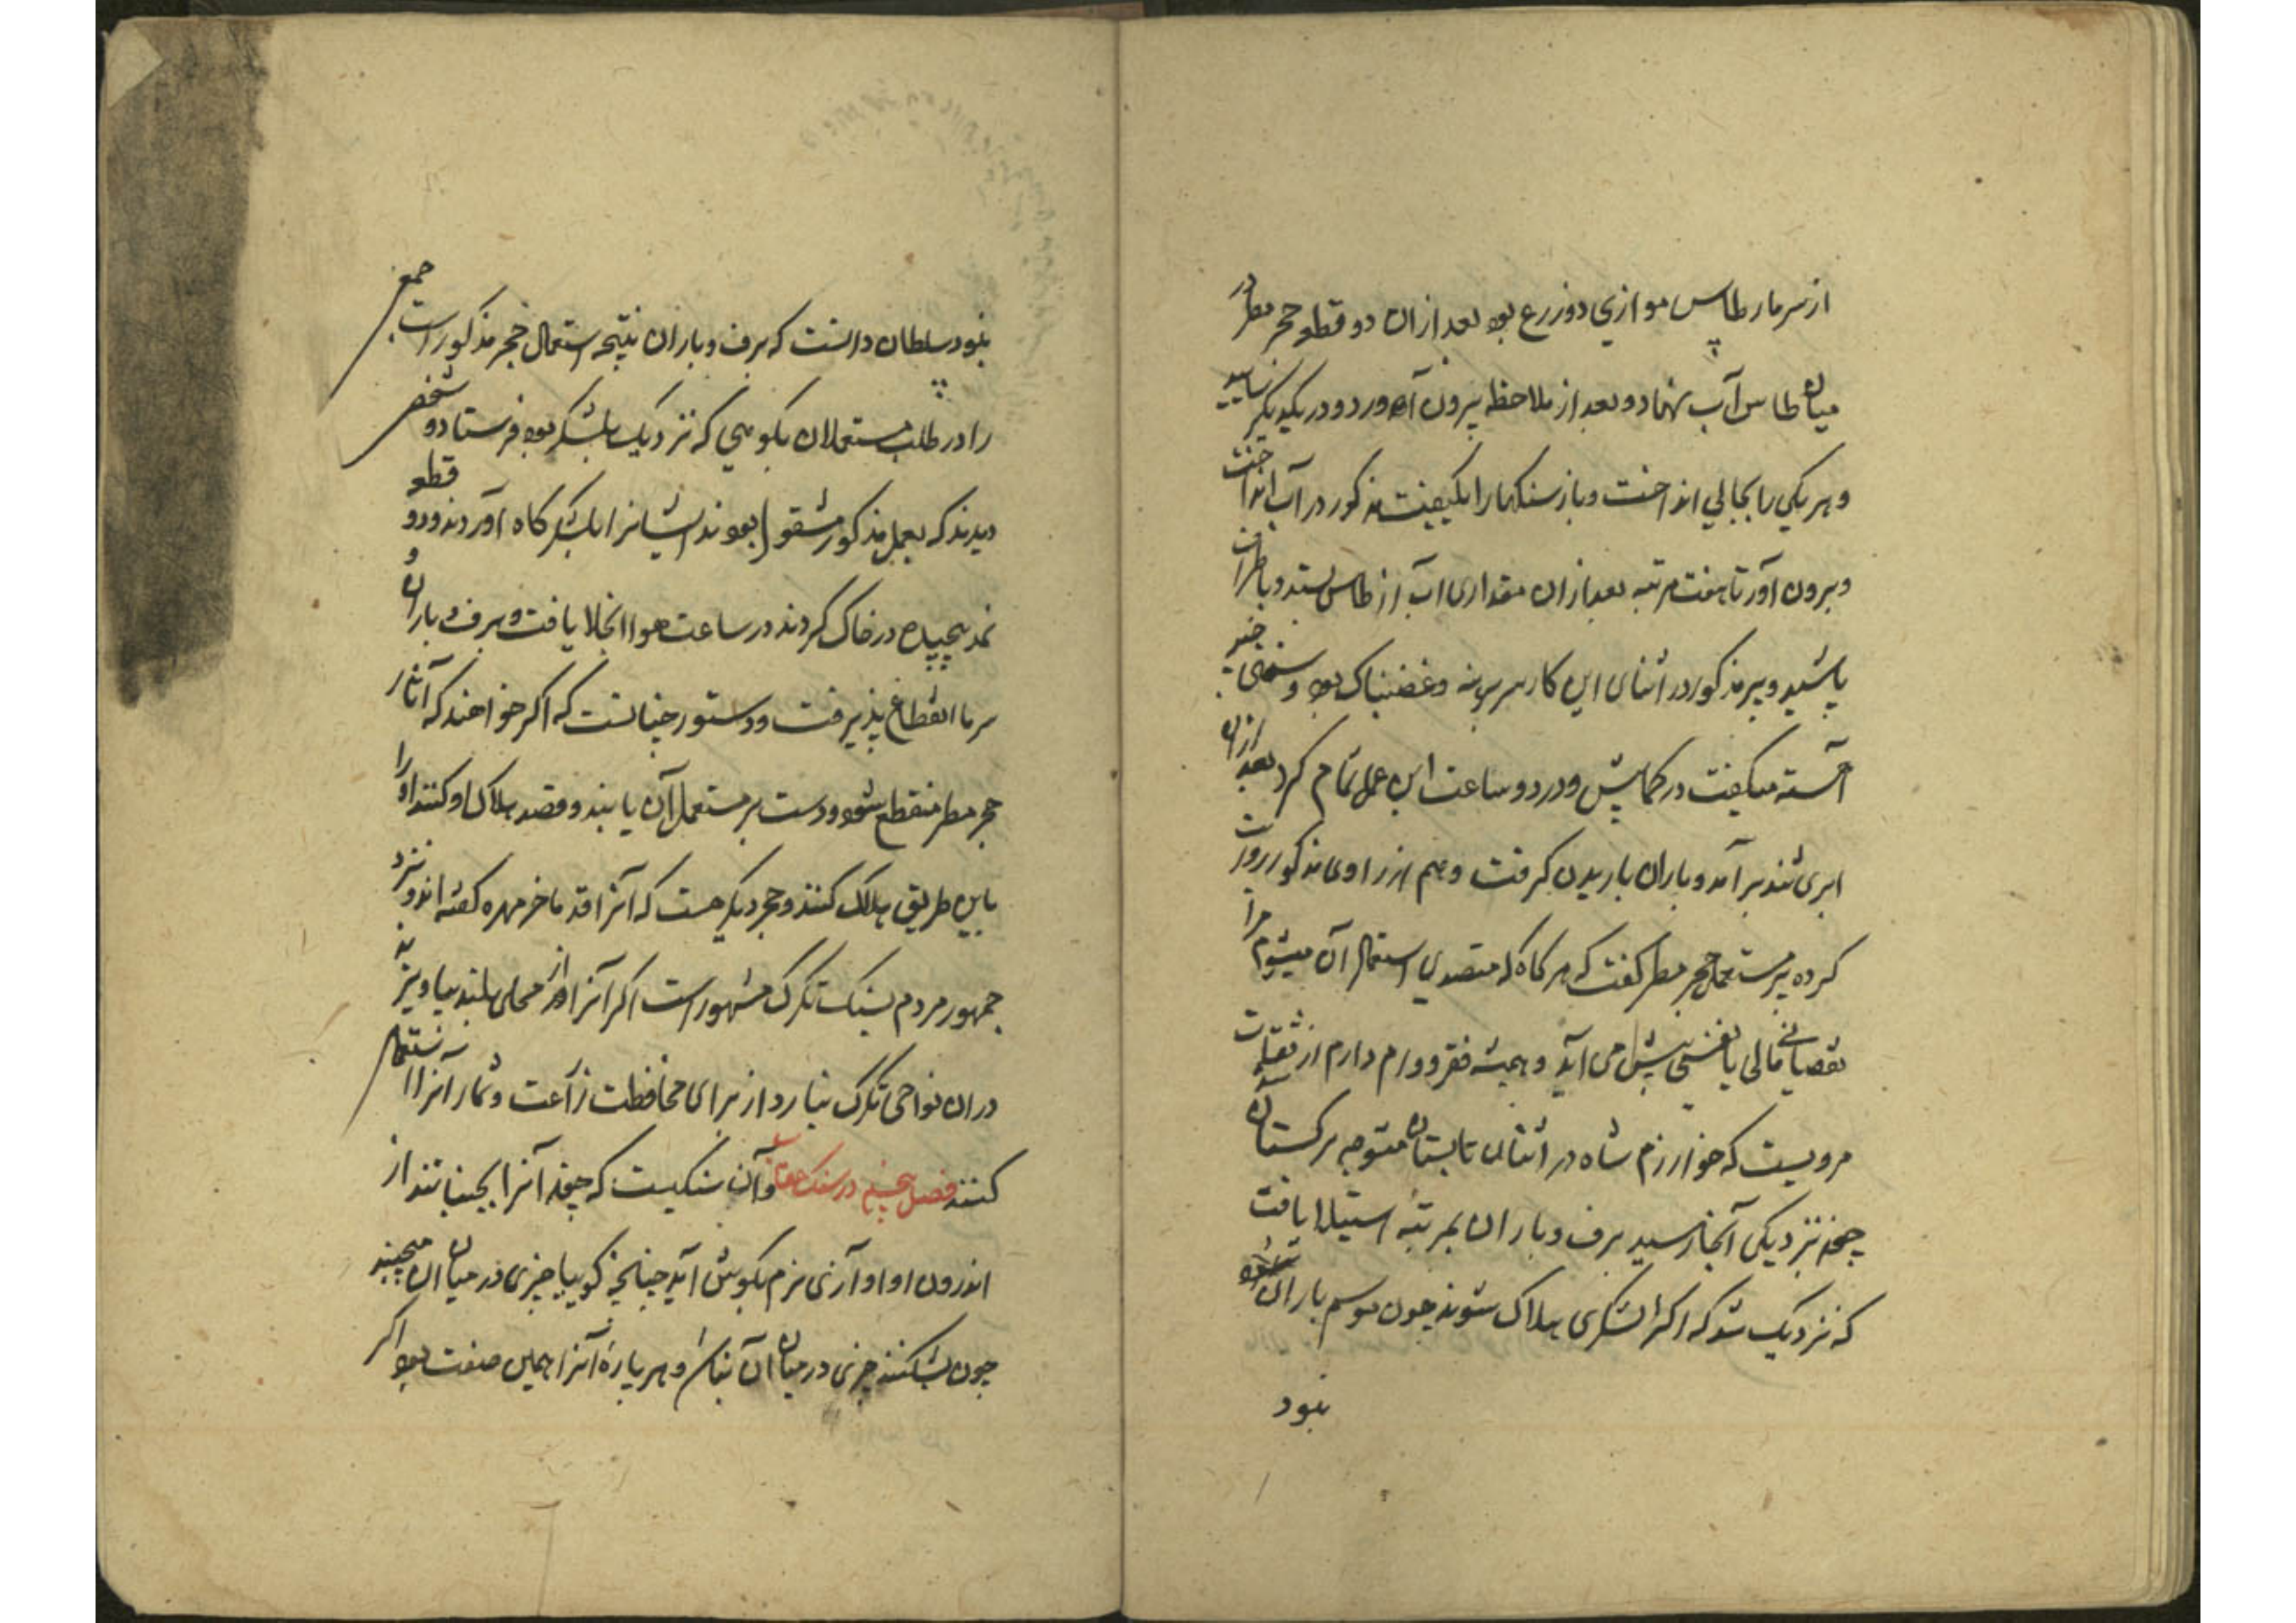 از سر مار طاس موازی دو زرع بود بعد از ان دو قطعه حجر مطر در
میان طاس آب نهاد و بعد از ملاحظه بیرون آورد و در یکدیکر سایید
و هر یکی را بجالی انداخت و باز سنکها را بکیفیت مذکور در آب انداخت
و بیرون آورد تا هفت مرتبه بعد از ان مقداری اب از طاس ستد و باطراف
پاشید و پیر مذکور در اثنای این کار سر برهنه و غضبناک بود و سخنی چند
آهسته میکفت در کمابیش و در دو ساعت این عمل تمام کرد بعد ازان
ابری تند برآمد و باران باریدن کرفت و هم از راوی مذکور روایت
کرده پیر مستعمل حجر مطر کفت که هر کاه که متصدی استعمال آن میشوم مرا
نقصانی مالی یا نفسی پیش می آید و همیشه فقر و وام دارم از ثقات
مرویست که خوارزم شاه در اثنای تابستان متوجه ترکستان شد
چون نزدیکی آنجا رسید برف و باران بمرتبه استیلا یافت
که نزدیک شد که اکثر لشکری هلاک شوند چون موسم باران
نبود
نبود سلطان دانست که برف و باران نتیجه استعمال حجر مذکور است جمعی
را در طلب مستعملان بکوهی که نزدیک بلشکر بود فرستاد دو شخص
دیدند که بعمل مذکور مشغول بودند ایشانرا بلشکر کاه آوردند و دو قطعه
نمد پیچیده در خاک کردند در ساعت هوا انجلا یافت و برف و باران و
سرما انقطاع پذیرفت و دستور چنانست که اکر خواهند که آثار
حجر مطر منقطع شود و دست بر مستعمل آن یابند و قصد هلاک او کنند او را
باین طریق هلاک کنند و حجر دیکر هست که آنرا قدما خر مهره کفته اند و نزد
جمهور مردم بسنک تکرک مشهور است اکر آنرا از محلی بلند بیاویزند
دران نواحی تکرک نبارد از برای محافظت زراعت و ثمار آنرا استعمال
کنند فصل پنجم در سنک عقاب و آن سنکیست که چون آنرا بجنبانند از
اندرون او آوازی نرم بکوش آید چنانچه کوییا چیزی در میان آن میجنبد
چون بشکنند چیزی در میان آن نباشد و هر پاره آنرا همین صفت بود اکر